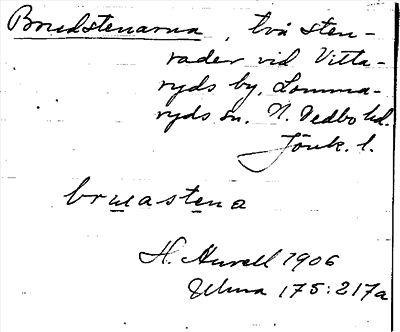 Brudstenarna, två sten-
rader vid Vitta-
ryds by, Lomma-
ryds sn. N. Vedbo hd.
Jönk. l.
bruastena
H. Aurell 1906
Ulma 175:217a